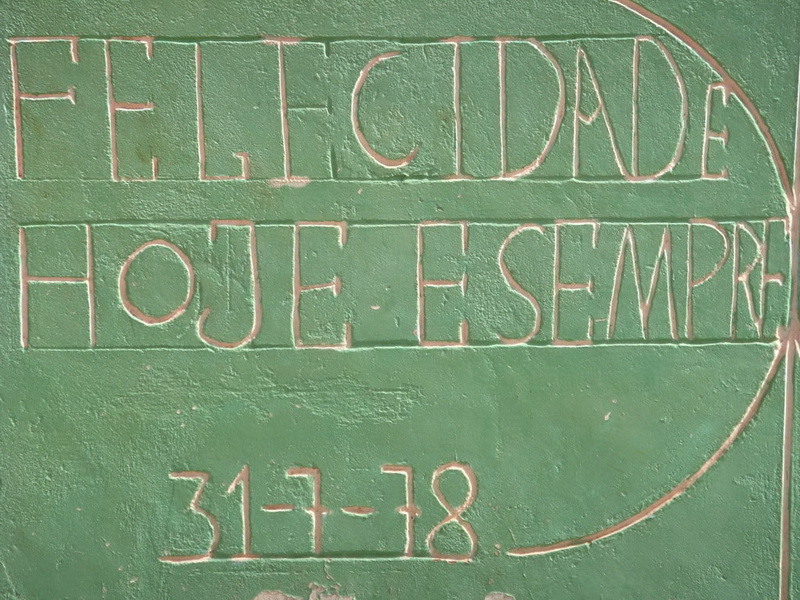 FELICIDADE
HOJE E SEMPRE
31-7-78